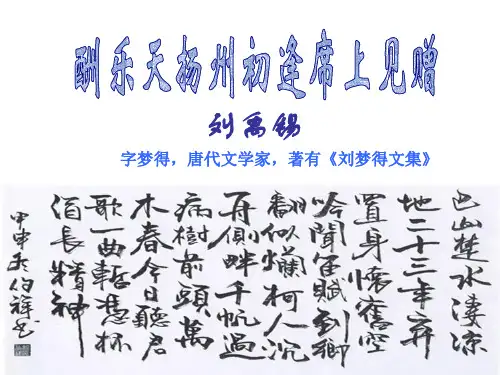 酬乐天扬州初逢席上见赠
刘禹锡
字梦得，唐代文学家，著有《刘梦得文集》
巴山楚水凄涼
地二十三年弃
置身懷舊空
吟聞笛賦到鄉
翻似爛柯人沉
舟側畔千帆過
病樹前頭萬
木春今日聽君
歌一曲暫憑杯
酒長精神
甲申